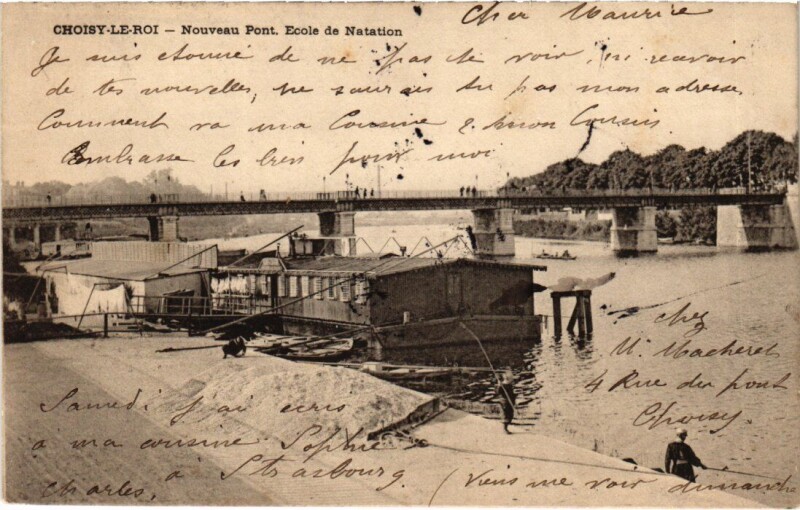 CHOISY-LE-ROI — Nouveau Pont. Ecole de Natation
Cher Maurice
Je suis etonné de ne pas te voir, ni recevoir
de tes nouvelles, ne saurais tu pas mon adresse.
Comment va ma Cousine & mon Cousin
Embrasse les bien pour moi
chez
M. Macheret
4 Rue du pont
Choisy.
Samedi j'ai ecris
a ma cousine Sophie
a Strasbourg.
Charles.
(Viens me voir dimanche